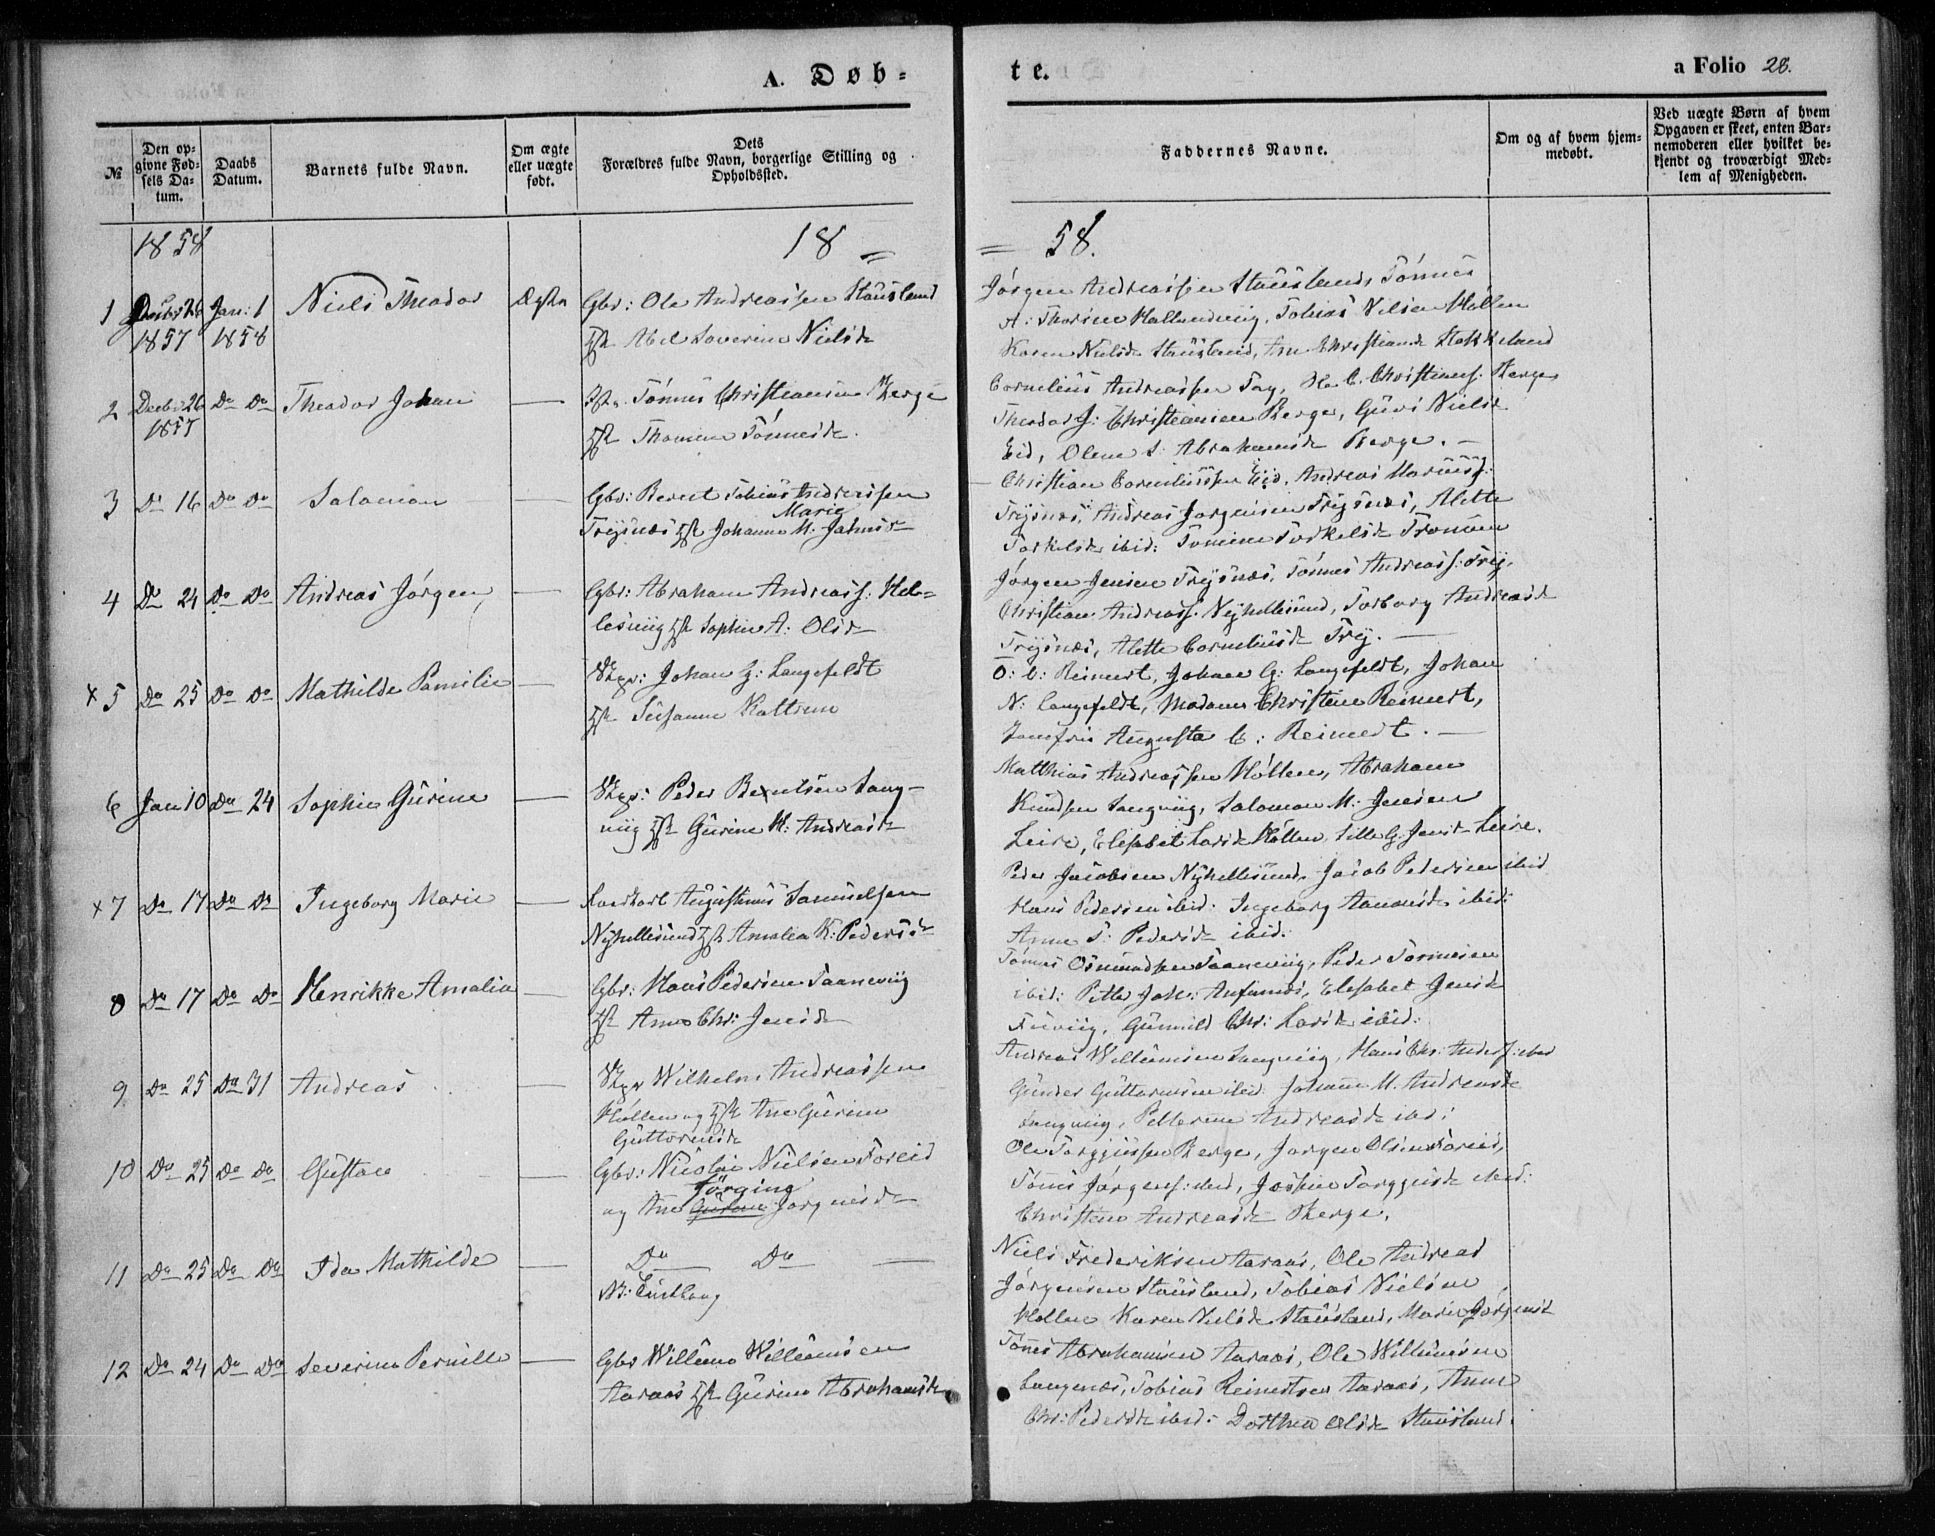 A. Døb-
te.
a Folio 28.
№
Den op-
givne Fød-
sels Da-
tum.
Daabs
Datum.
Barnets fulde Navn.
Om ægte
eller uægte
født.
Dets
Forældres fulde Navn, borgerlige Stilling og
Opholdssted.
Faddernes Navne.
Om og af hvem hjem-
medøbt.
Ved uægte Børn af hvem
Opgaven er skeet, enten Bar-
nemoderen eller hvilket be-
kjendt og troværdigt Med-
lem af Menigheden.
1858
18 =
= 58.
1 Decbr 26 Jan: 1 Niels Theodor Ægte Gbr: Ole Andreassen Stausland
1857 1858
Abel Severine Nielsd
Jørgen Andreassen Stausland, Tønnes
A: Thorsen Hallandviig, Tobias Nilsen Høllen
Karen Nielsd Stausland, Ane Christiansd Stokkeland
2 Decbr 26 Do Do Theodor Johan — Tønnes Christiansen Berge
1857
Thomine Tønnesd.
Cornelius Andreassen Tag, C. Christians. Berge
Theodor J: Christiansen Berge, Guri Nielsd
Eid, Olene S: Abrahamsd Berge. —
3 Do 16 Do Do Salomon — Gbr: Berent Tobias Andreassen
Marie
Trysnæs Johanne M. Jahnsd
Christian Corneliussen Eid, Andreas Mariuss:
Trysnæs, Andreas Jørgensen Trysnæs, Alette
Torkelsd ibid: Tomine Torkelsd Tronmn
4 Do 24 Do Do Andreas Jørgen — Gbr: Abraham Andreass: Hel-
lesviig Sophie A: Olsd
Jørgen Jensen Trysnæs, Tønnes Andreass: Try,
Christian Andreass. Nyhellesund, Torborg Andreasd
Trysnæs, Alette Corneliusd Try. —
x 5 Do 25 Do Do Mathilde Pamilie — Johan G: Langefeldt
Susanne Kattrine
O: C: Reinert, Johan G: Langefeldt, Johan
N: Langefeldt, Madame Christine Reinert,
Jomfru Augusta C: Reinert. —
6 Jan 10 Do 24 Sophie Gurine — Peder Berntsen Lang-
viig Gurine M: Andreasd
Matthias Andreassen Høllen, Abraham
Knudsen Langviig, Salomon M: Jensen
Leire, Elisabet Larsd Høllen, Sille G: Jensd Leire.
x 7 Do 17 Do Do Ingeborg Marie — Augustinus Samuelsen
Nyhellesund Amalia K: Pedersd
Peder Jacobsen Nyhellesund, Jacob Pedersen ibid
Hans Pedersen ibid: Ingeborg Aanonsd ibid:
Anne S: Pedersd ibid:
8 Do 17 Do Do Henrikke Amalia — Gbr: Hans Pedersen Taaneviig
Anne Chr: Jensd
Tønnes Osmundsen Taaneviig, Peder Tønnesen
ibid: Joh: Elisabet Jensd
Gunnild Chr: Larsd ibid:
9 Do 25 Do 31 Andreas — Wilhelm Andreassen
Høllen og Ane Gurine
Guttormsd
Andreas Willumsen Langviig, Hans Chr: Anders: ibid
Gunder Guttormsen ibid: Johanne M. Andreasd
Langviig, Petterine Andreasd ibid:
10 Do 25 Do Do Gustav — Gbr: Nicolai Nielsen Foreid
Jørgine
og Ane Gurine Jørgensd
Ole Torgjussen Berge, Jørgen Olsen Foreid,
Tønnes Jørgens: ibid, Josefine Torgjusd ibid:
Christine Andreasd Berge.
11 Do 25 Do Do Ida Mathilde — Do Do —
NB: Tvilling
Niels Frederiksen Aaraas, Ole Andreas
Jørgensen Stausland, Tobias Nielsen
Høllen Karen Nielsd Stausland, Marie Jørgensd
12 Do 24 Do Do Severine Pernille — Gbr Willum Willumsen
Aaraas Gurine Abrahamsd
Tønnes Abrahamsen Aaraas, Ole Willumsen
Langenæs, Tobias Reinertsen Aaraas, Anne
Chr: Pedersd ibid: Dorthea Olsd Stausland.